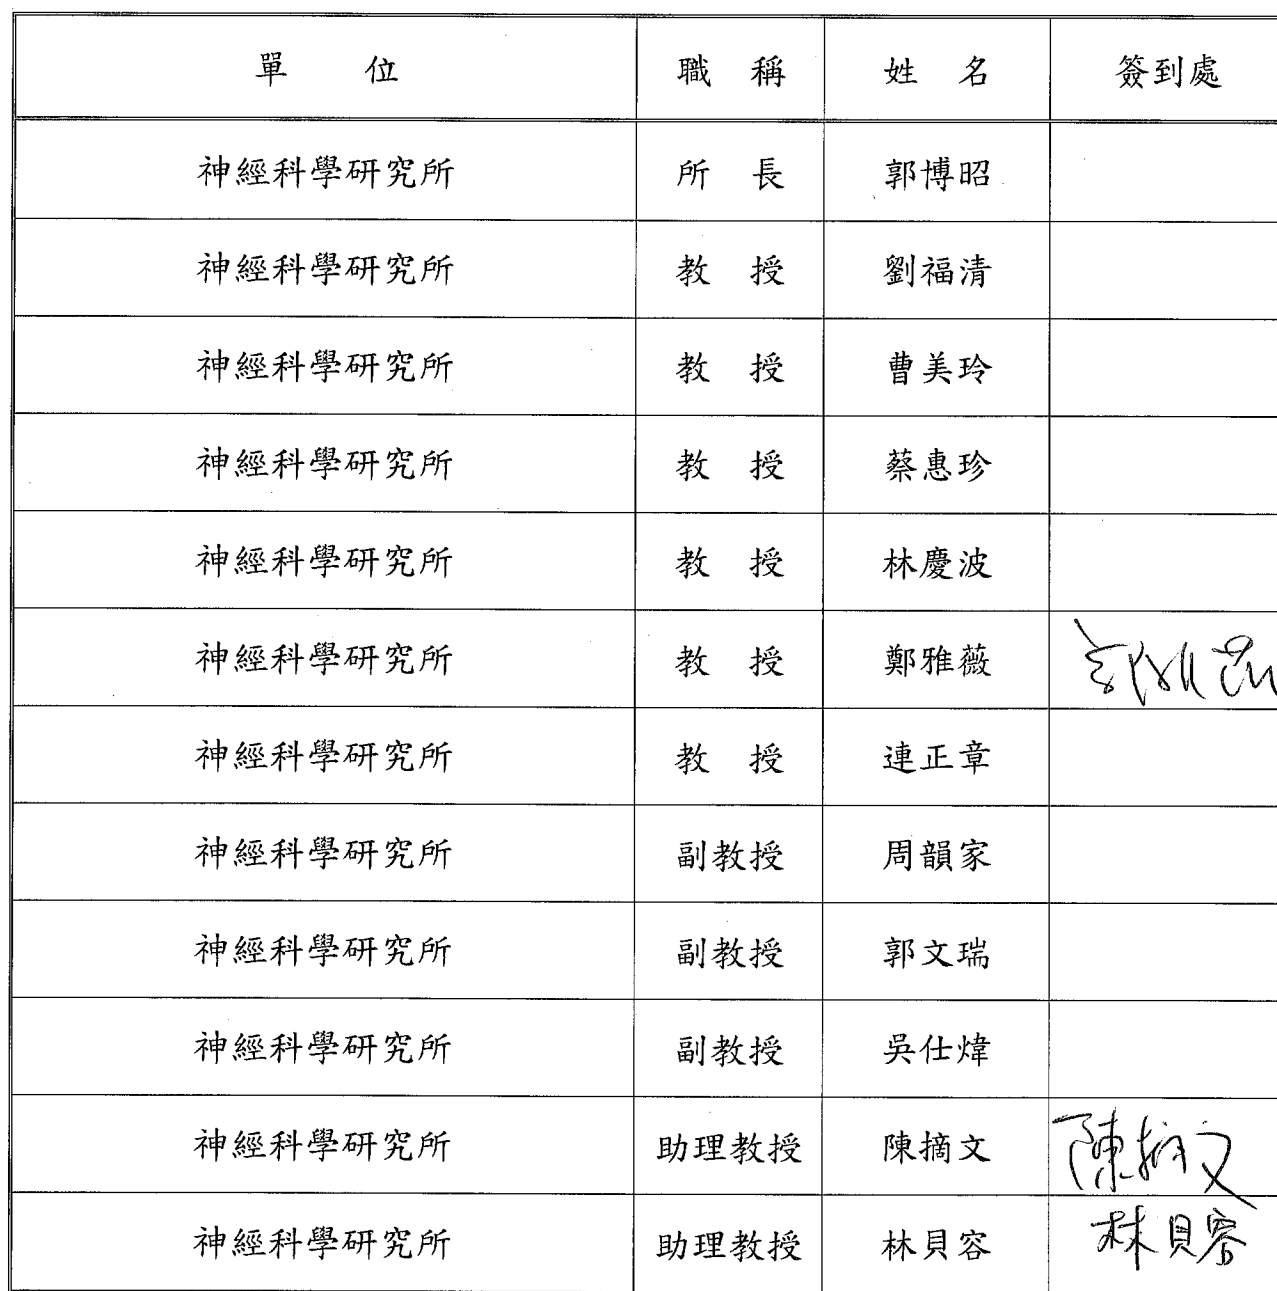 單 位 職 稱 姓 名 簽到處
神經科學研究所 所 長 郭博昭
神經科學研究所 教 授 劉福清
神經科學研究所 教 授 曹美玲
神經科學研究所 教 授 蔡惠珍
神經科學研究所 教 授 林慶波
神經科學研究所 教 授 鄭雅薇 鄭雅薇
神經科學研究所 教 授 連正章
神經科學研究所 副教授 周韻家
神經科學研究所 副教授 郭文瑞
神經科學研究所 副教授 吳仕煒
神經科學研究所 助理教授 陳摘文 陳摘文
神經科學研究所 助理教授 林貝容 林貝容